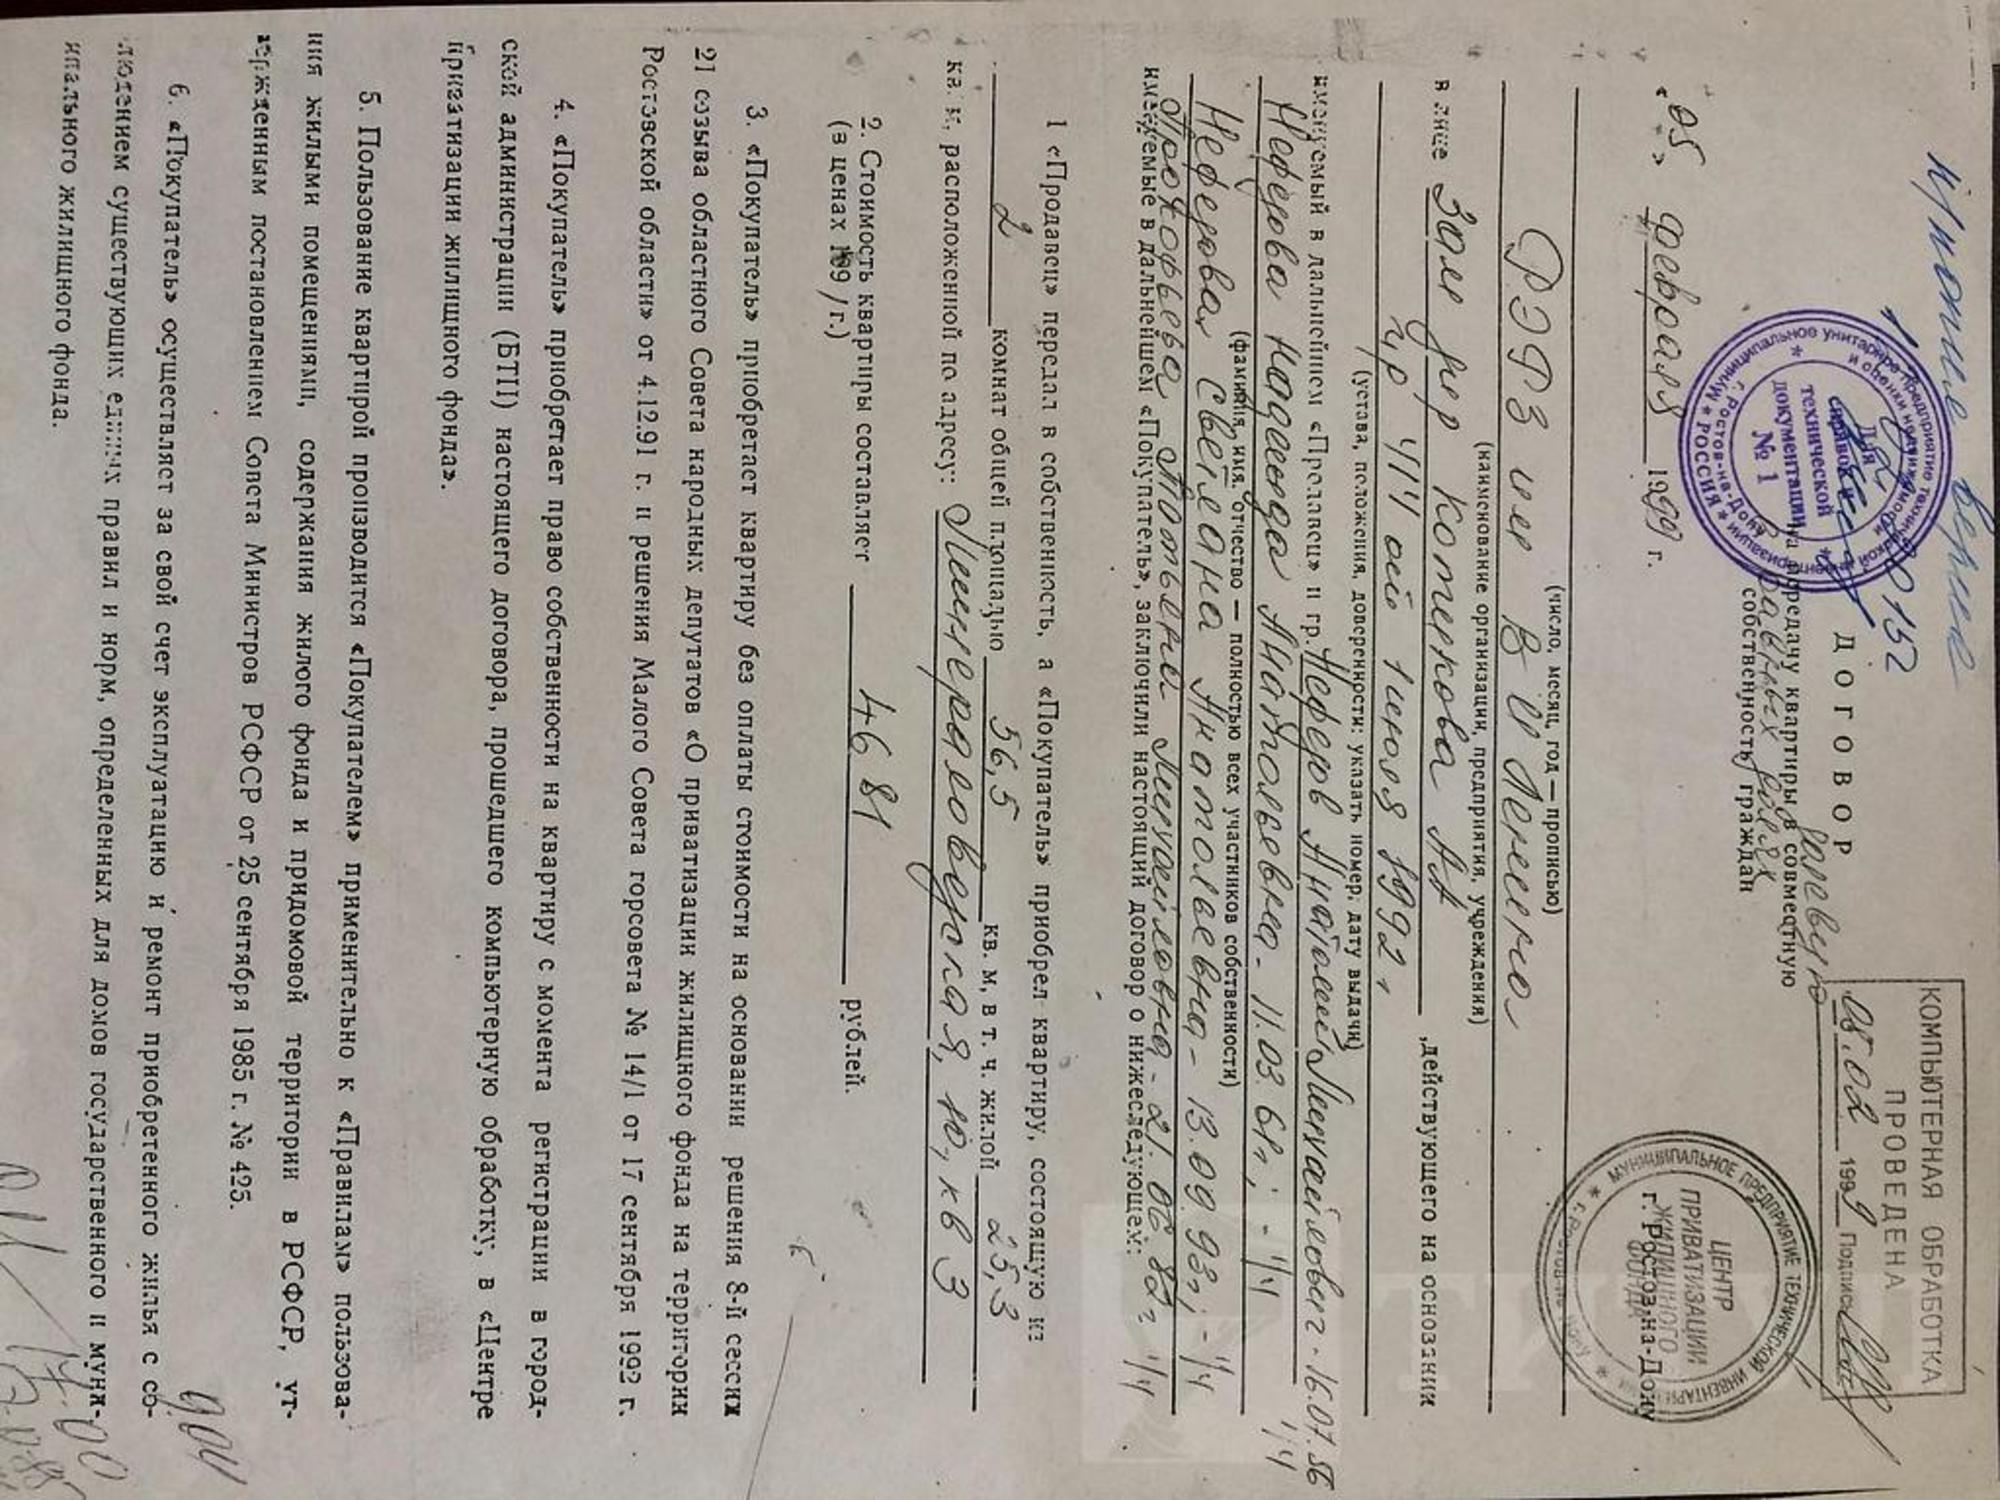 Крючные верно
КОМПЬЮТЕРНАЯ ОБРАБОТКА
ПРОВЕДЕНА
05.02 1999 Подпись
152
ДОГОВОР
на передачу квартиры в долевую совместную
в равных долях
собственность граждан
Муниципальное унитарное предприятие технической инвентаризации и оценки недвижимости
г. Ростов-на-Дону
* РОССИЯ *
Для
технической
документации
№ 1
«05» февраля 1999 г.
г. Ростов-на-Дону
МУНИЦИПАЛЬНОЕ ПРЕДПРИЯТИЕ ТЕХНИЧЕСКОЙ ИНВЕНТАРИЗАЦИИ
ЦЕНТР
ПРИВАТИЗАЦИИ
ЖИЛИЩНОГО
ФОНДА
(число, месяц, год — прописью)
РЭФЗ им В И Ленина
(наименование организации, предприятия, учреждения)
в лице Зам дир Котенкова АА ,действующего на основании
444 от 1 июля 1992 г
(устава, положения, доверенности: указать номер; дату выдачи)
именуемый в дальнейшем «Продавец» и гр. Нефедов Анатолий Михайлович - 16.07.56 1/4
Нефедова Надежда Анатольевна - 11.03.61г; - 1/4
(фамилия, имя, отчество — полностью всех участников собственности)
Нефедова Светлана Анатольевна - 13.09.93г; - 1/4
Прокофьева Татьяна Михайловна - 21.06.82г 1/4
именуемые в дальнейшем «Покупатель», заключили настоящий договор о нижеследующем:
1 «Продавец» передал в собственность, а «Покупатель» приобрел квартиру, состоящую из
2 комнат общей площадью 56,5 кв. м, в т. ч. жилой 25,3
кв. м, расположенной по адресу: Минераловодская, 10, кв 3
2. Стоимость квартиры составляет 4681 рублей.
(в ценах 1991 г.)
3. «Покупатель» приобретает квартиру без оплаты стоимости на основании решения 8-й сессии
21 созыва областного Совета народных депутатов «О приватизации жилищного фонда на территории
Ростовской области» от 4.12.91 г. и решения Малого Совета горсовета № 14/1 от 17 сентября 1992 г.
4. «Покупатель» приобретает право собственности на квартиру с момента регистрации в город-
ской администрации (БТИ) настоящего договора, прошедшего компьютерную обработку, в «Центре
приватизации жилищного фонда».
5. Пользование квартирой производится «Покупателем» применительно к «Правилам» пользова-
ния жилыми помещениями, содержания жилого фонда и придомовой территории в РСФСР, ут-
вержденным постановлением Совета Министров РСФСР от 25 сентября 1985 г. № 425.
6. «Покупатель» осуществляет за свой счет эксплуатацию и ремонт приобретенного жилья с со-
людением существующих единых правил и норм, определенных для домов государственного и муни-
ипального жилищного фонда.